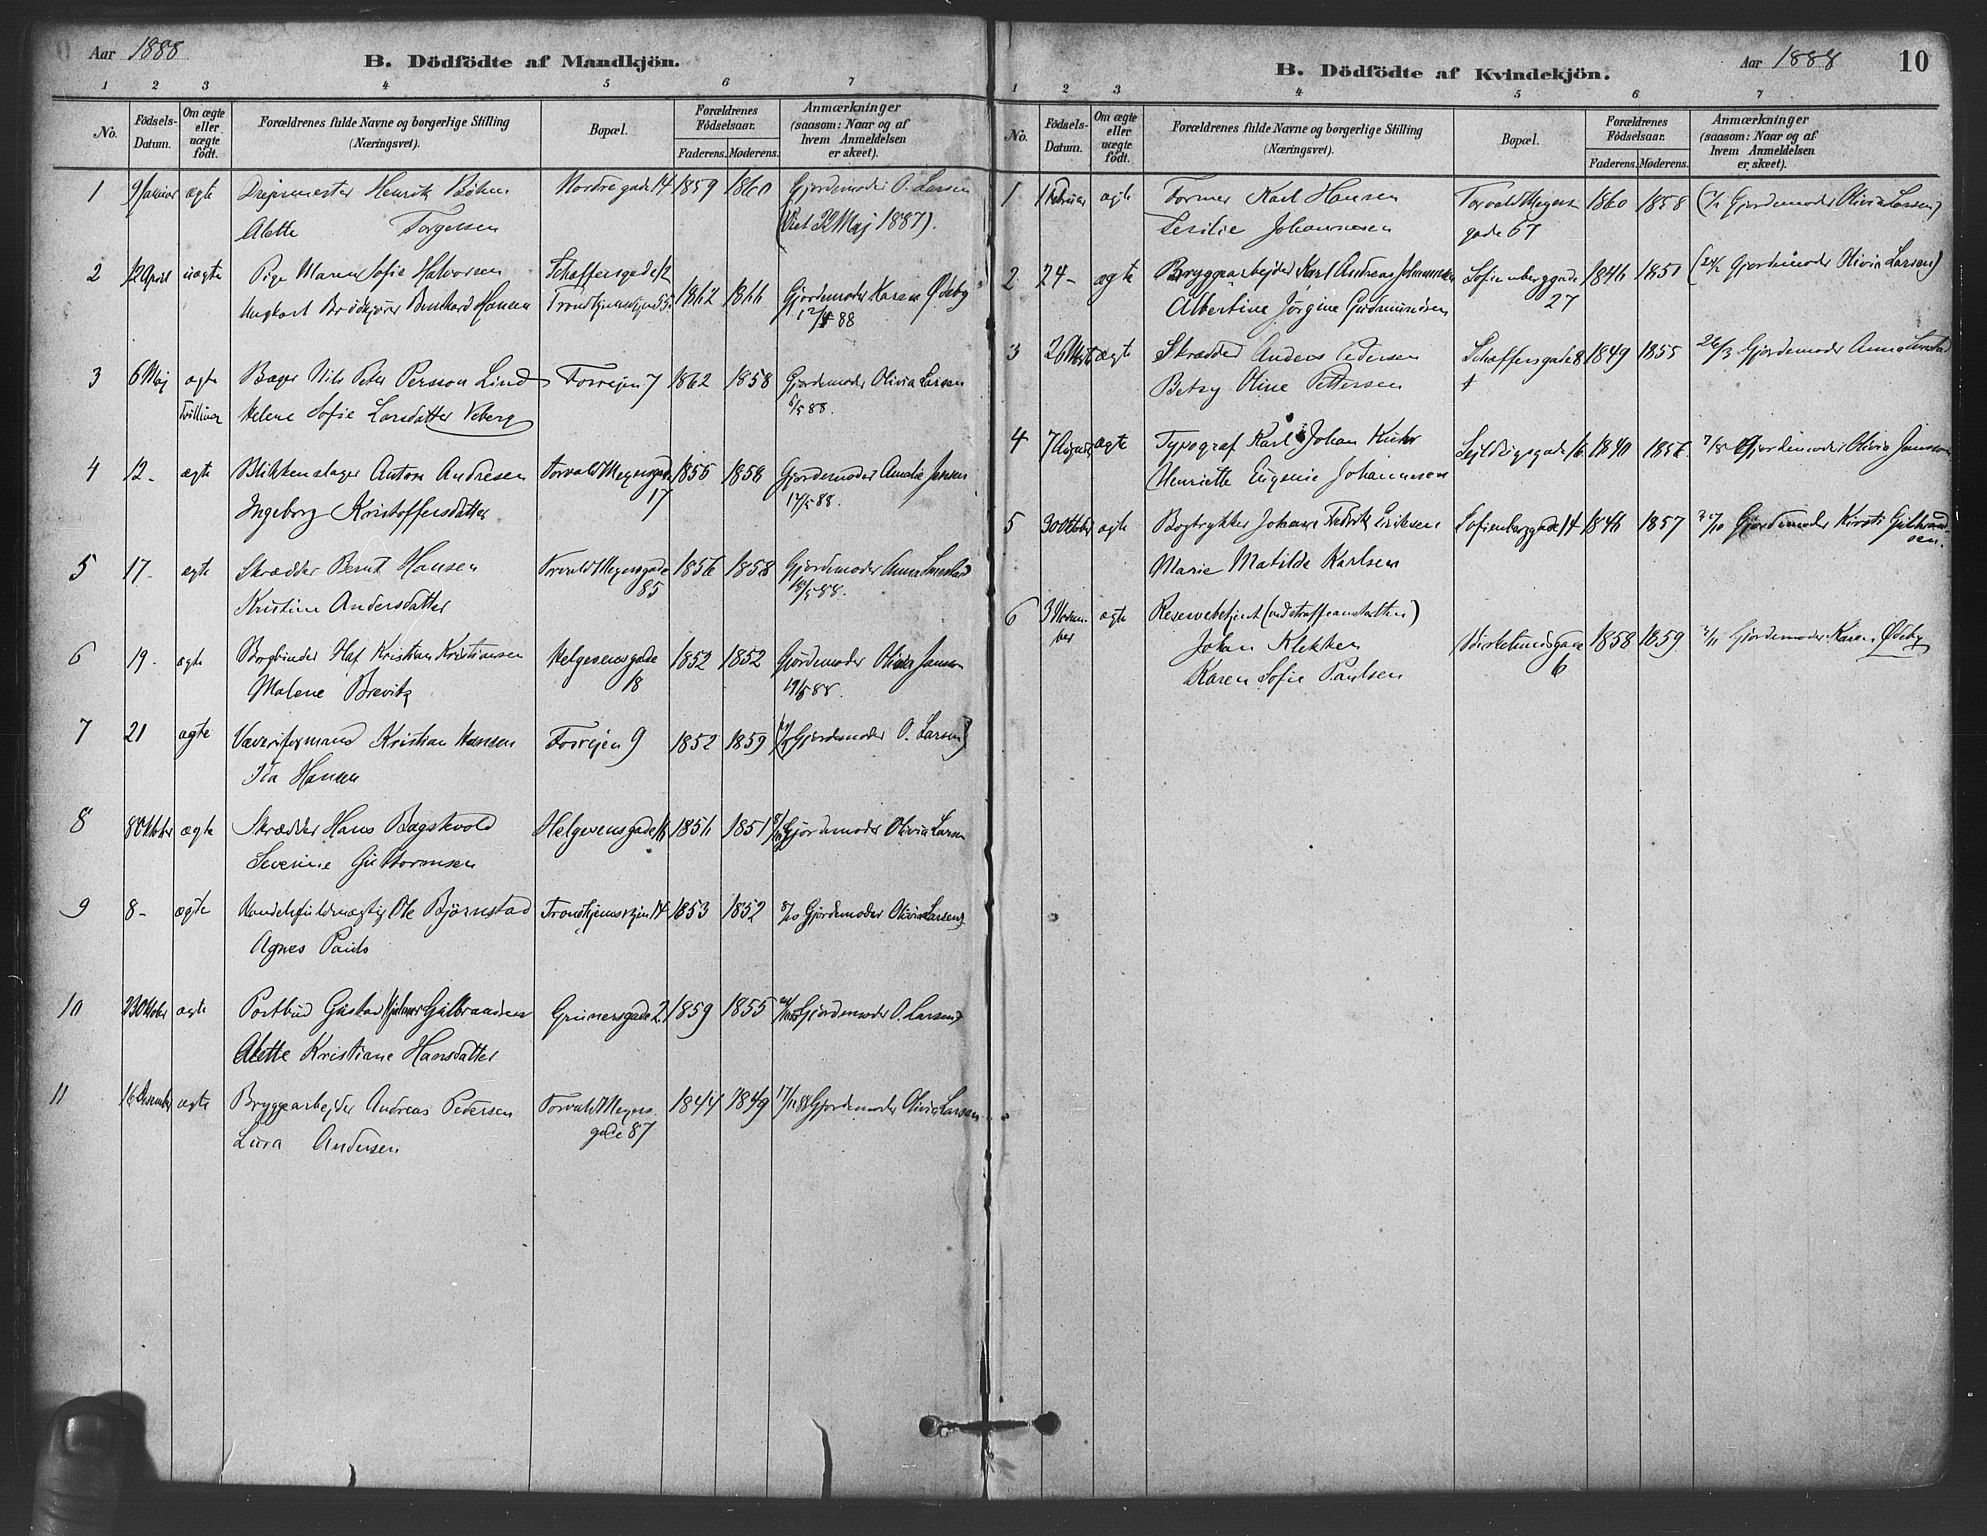 Aar 1888
B. Dödfödte af Mandkjön.
1 2 3 4 5 6 7
No.
Födsels-
Datum.
Om ægte
eller
uægte
födt.
Forældrenes fulde Navne og borgerlige Stilling
(Næringsvei).
Bopæl.
Forældrenes
Födselsaar.
Faderens. Moderens.
Anmærkninger
(saasom: Naar og af
hvem Anmeldelsen
er skeet).
1 9 Januar ægte Henrik Böhm Nordregade 14 1859 1860 Gjordemoder O. Larsen
Alette Torgersen (Viet 22 Maj 1887).
2 12 April uægte Pige Maren Sofie Halvorsen Schæffersgade 12
Ungkarl Bernhard Hansen 1862 1866 Gjordemoder Karen Ødeby
12/4 88
3 6 Maj ægte Bager Nils Peter Persson Lind Fossvejen 7 1862 1858 Gjordemoder Olivia Larsen
Tvilling Helene Sofie Larsdatter Veberg 6/5 88.
4 12 - ægte Blikkenslager Anton Andresen Torvald Meyersgade 1855 1858 Gjordemoder Amalie Jensen
Ingeborg Kristoffersdatter 17 14/5 88.
5 17 - ægte Skrædder Bernt Hansen Torvald Meyersgade 1856 1858 Gjordemoder Anna
Kristine Andersdatter 85 18/5 88.
6 19 - ægte Bogbinder Olaf Kristian Kristiansen Helgesensgade 1852 1852 Gjordemoder Olivia Jansson
Malene Brevik 18 19/5 88.
7 21 ægte Væveriformand Kristian Hansen Fossvejen 9 1852 1859 Gjordemoder O. Larsen)
Ida Hansen
8 8 Oktober ægte Skrædder Hans Bagstevold Helgesensgade 16 1856 1851 Gjordemoder Olivia Larsen
Severine Guttormsen
9 8 - ægte Handelsfuldmægtig Ole Bjørnstad Trondhjemsvejen 14 1853 1852 8/10 Gjordemoder Olivia Larsen
Agnes
10 23 Oktober ægte Postbud Gustav Hjalmar Gulbrandsen Grünersgade 2 1859 1855 Gjordemoder O. Larsen
Alette Kristiane Hansdatter
11 16 Desember ægte Bryggearbejder Andreas Pedersen Torvald Meyers 1844 1849 17/12 88 Gjordemoder Olivia Larsen
Lina Andersen gade 87
B. Dödfödte af Kvindekjön.
Aar 1888 10
1 2 3 4 5 6 7
No.
Födsels-
Datum.
Om ægte
eller
uægte
födt.
Forældrenes fulde Navne og borgerlige Stilling
(Næringsvei).
Bopæl.
Forældrenes
Födselsaar.
Faderens. Moderens.
Anmærkninger
(saasom: Naar og af
hvem Anmeldelsen
er skeet).
1 1 Februar ægte Former Karl Hansen Torvald Meyers 1860 1858 Gjordemoder Olivia Larsen)
Cesilie Johannesen gade 67
2 24 - ægte Bryggearbejder Karl Andreas Johannesen Sofienberggade 1846 1851 (24/2 Gjordemoder Olivia Larsen)
Albertine Jørgine Gudmundsen 27
3 26 Marts ægte Skrædder Anders Pedersen Schæffersgade 8 1849 1855 26/3 Gjordemoder Anna
Betsy Oline Pettersen
4 7 August ægte Typograf Karl Johan Kuhr Sejlduksgade 16 1840 1856 7/8 Gjordemoder Olivia Jansson
Henriette Eugenie Johannesen
5 30 Oktober ægte Bogtrykker Johan Fredrik Eriksen Sofienberggade 14 1846 1857 Gjordemoder Kirsti Gulbrand-
Marie Matilde Karlsen sen.
6 3 Novem- ægte Reservebetjent (ved strafeanstalten)
ber Johan Klekken Birkelundsgade 1858 1859 Gjordemoder Karen Ødeby
Karen Sofie Paulsen 6